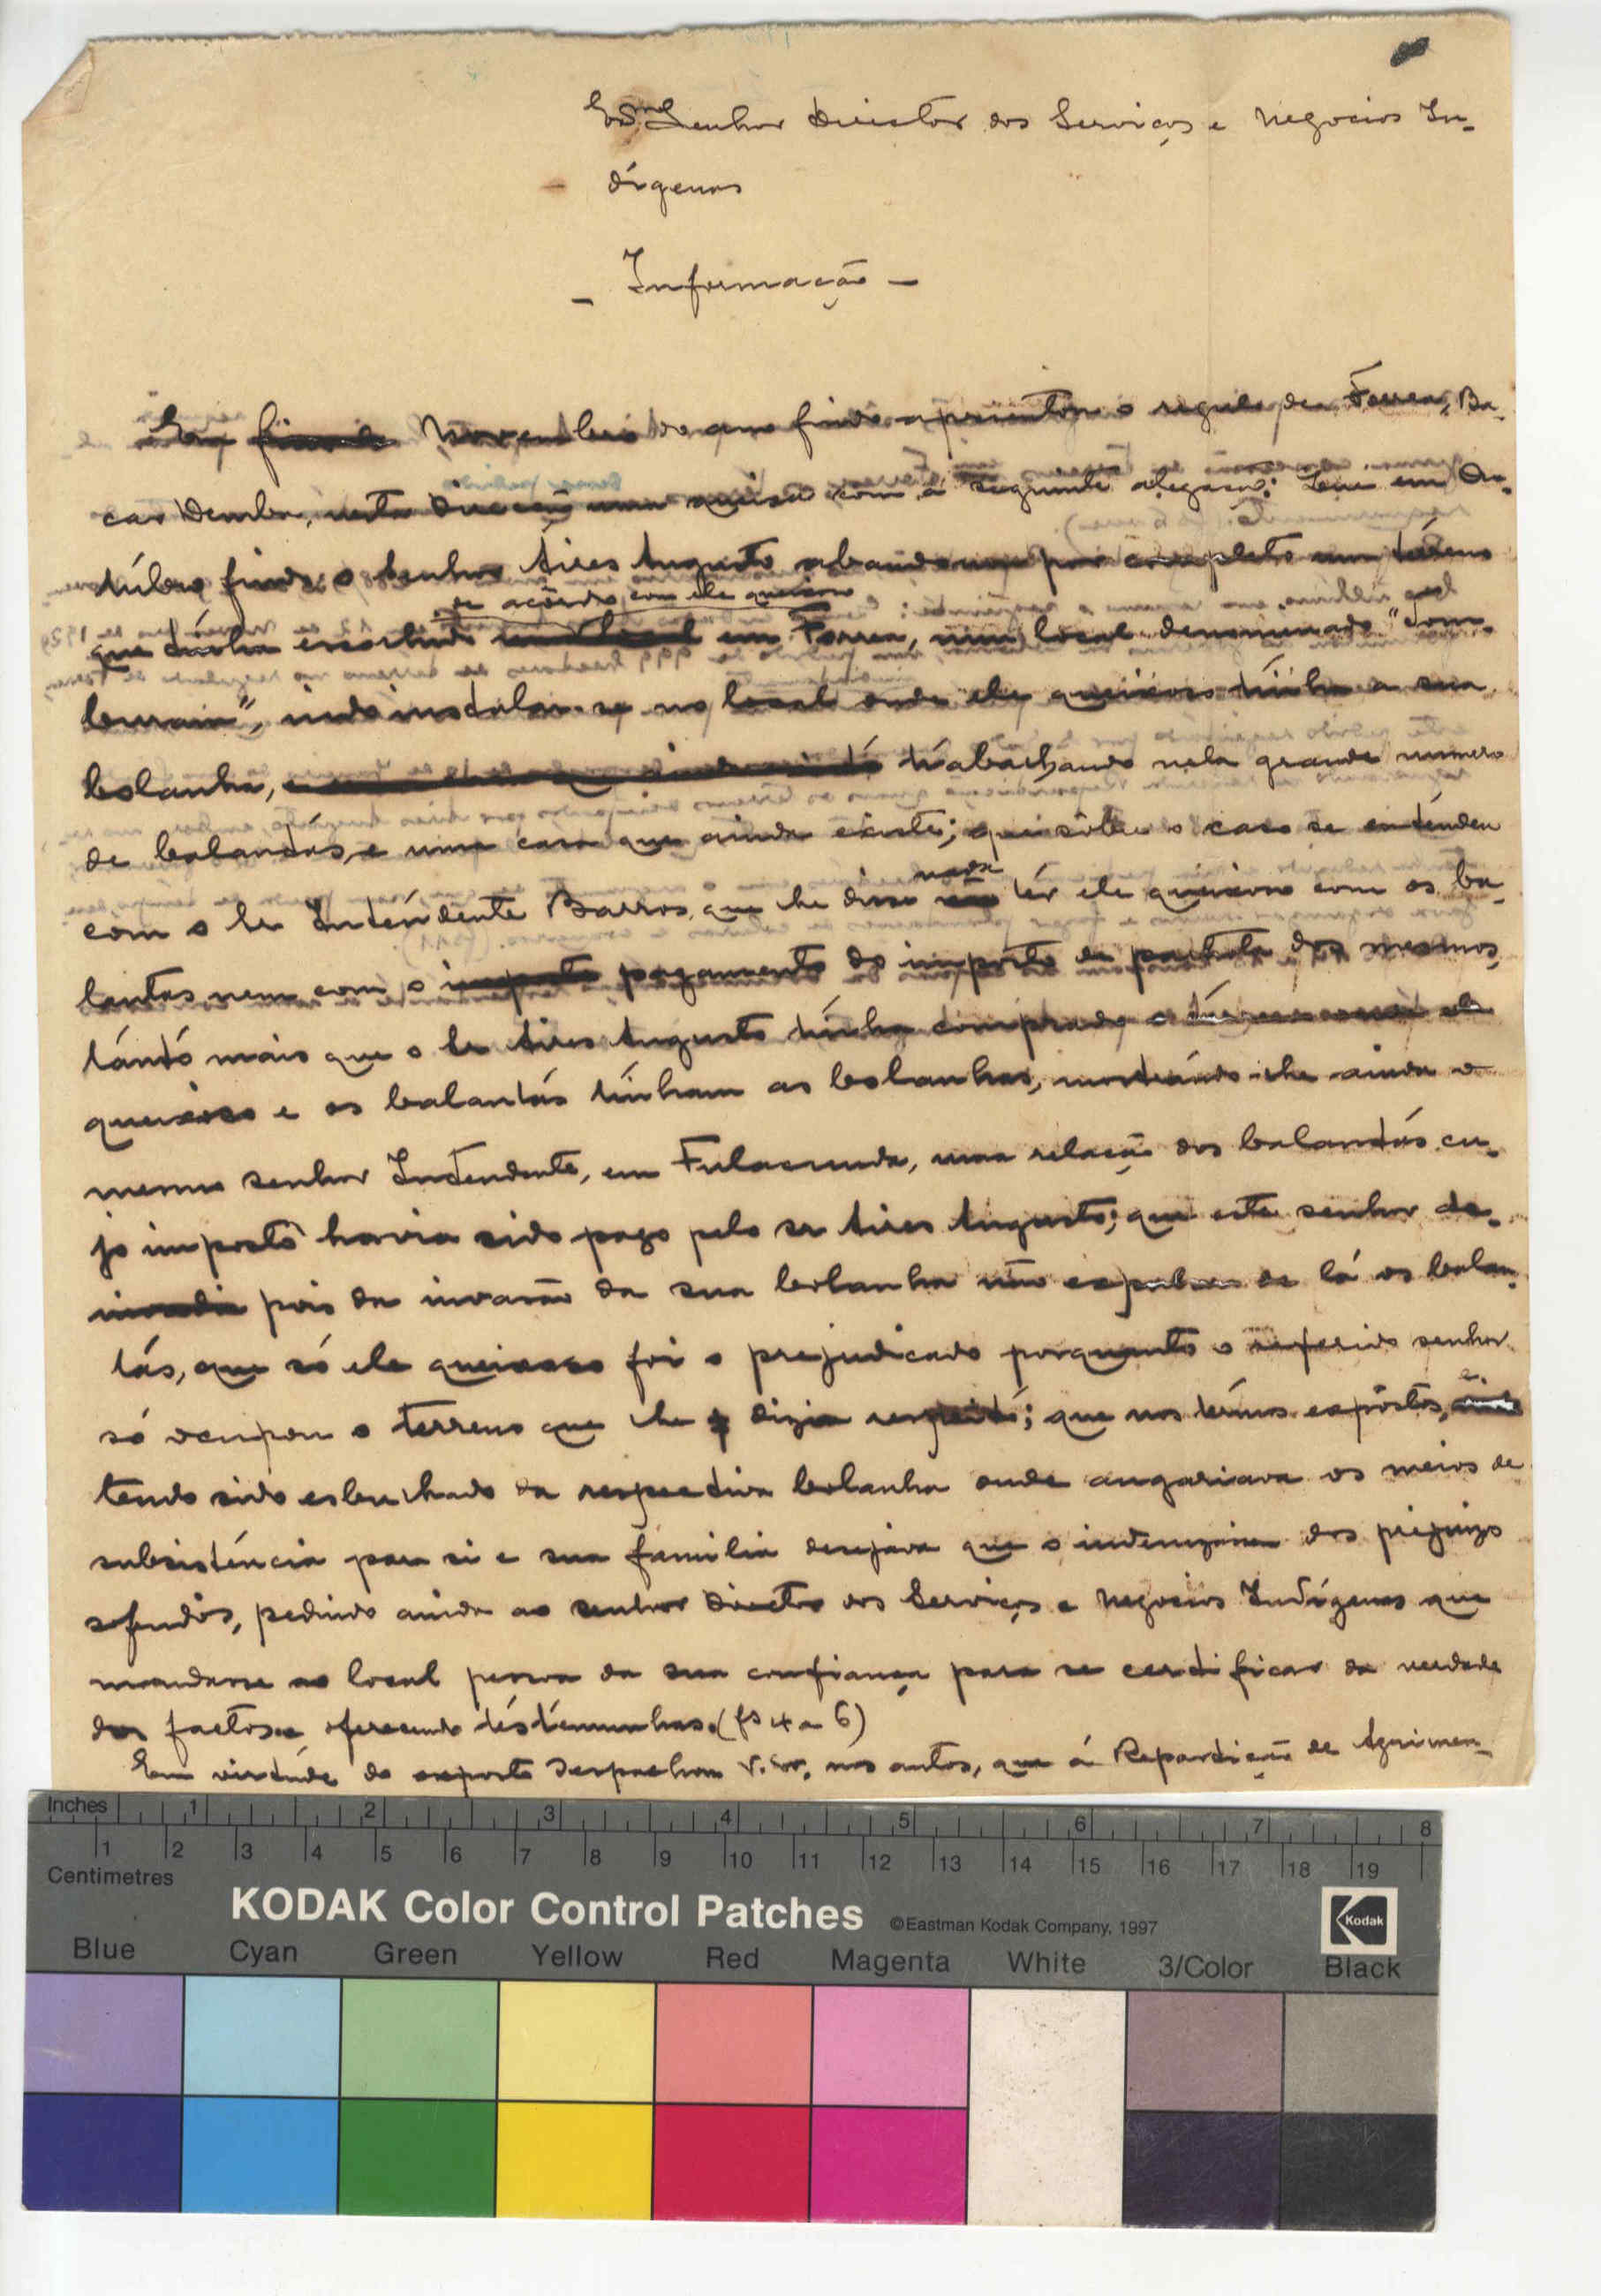 Exmº Senhor Director dos Serviços e Negocios In-
dígenas
- Informação -
Em Novembro do ano findo apresentou o regulo de Forrea, Ba-
car Demba, nesta Direcção uma queixa com a seguinte alegação: Que em Ou-
túbro findo o senhor Aires Augusto abandonou por completo um térreno
de acôrdo com ele queixoso
que tinha escolhido em Forrea, num local denominado "Com-
", indo instalar-se no local onde ele queixoso tinha a sua
bolanha, trabalhando nela grande numero
de balantas, e uma casa que ainda existe; que sôbre o caso se entendeu
nada
com o Sr Inténdente Barros, que lhe disse ter ele queixoso com os ba-
lantas nem com o pagamento do imposto de palhota dos mesmos,
tánto mais que o Sr Aires Augusto tinha comprado o térreno onde ele
queixoso e os balantas tinham as bolanhas, mostrando-lhe ainda o
mesmo senhor Intendente, em Fulacunda, uma relação dos balantas cu-
jo imposto havia sido pago pelo sr Aires Augusto; que este senhor de-
pois da invasão da sua bolanha não expulsou de lá os balan-
tas, que só ele queixoso foi o prejudicado porquanto o referido senhor
só ocupou o terreno que lhe dizia respeito; que nos térmos expôstos, e
tendo sido esbulhado da respectiva bolanha onde angariava os meios de
subsisténcia para si e sua familia desejava que o indemnizassem dos prejuizos
sofridos, pedindo ainda ao senhor Director dos Serviços e Negocios Indígenas que
mandasse ao local pessoa da sua confiança para se certificar da verdade
dos factos e oferecendo téstemunhas. (fs 4 a 6)
Em virtúde do exposto despachou V. Exª, nos autos, que á Repartição de Agrimen-
Inches 1 2 3 4 5 6 7 8
Centimetres 1 2 3 4 5 6 7 8 9 10 11 12 13 14 15 16 17 18 19
KODAK Color Control Patches ©Eastman Kodak Company, 1997 Kodak
Blue Cyan Green Yellow Red Magenta White 3/Color Black